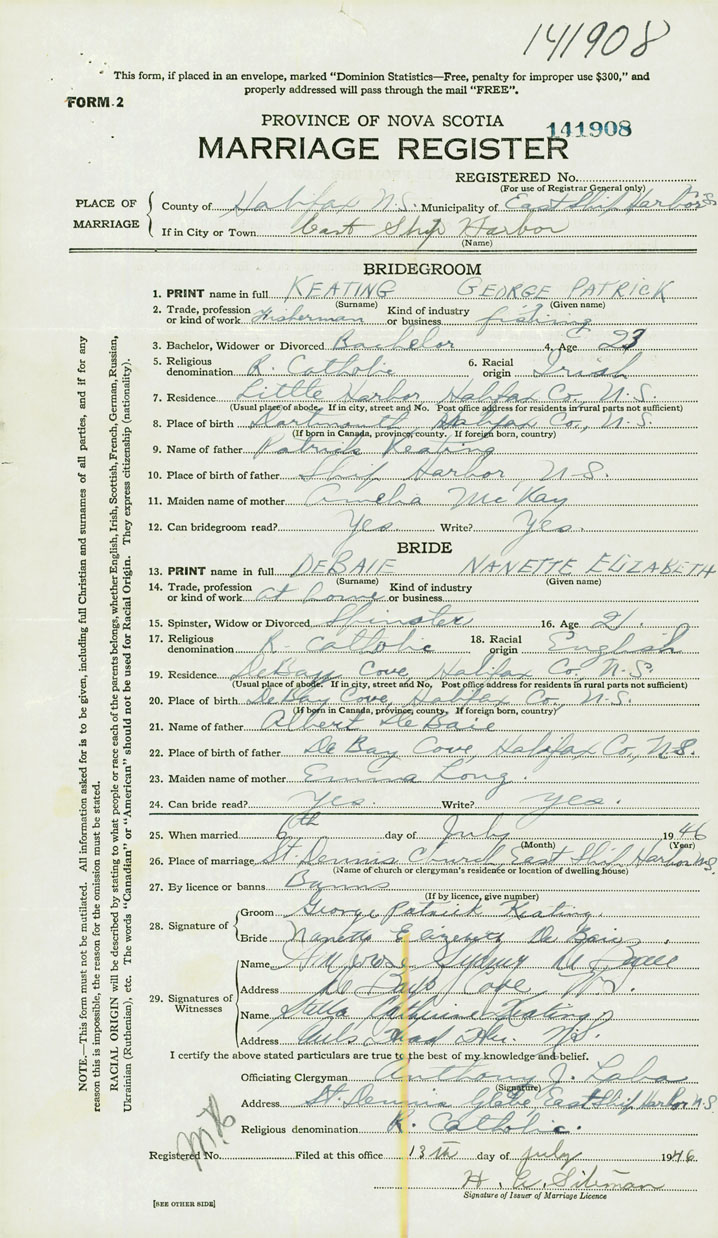 141908
This form, if placed in an envelope, marked "Dominion Statistics—Free, penalty for improper use $300," and
properly addressed will pass through the mail "FREE".
FORM 2
PROVINCE OF NOVA SCOTIA
141908
MARRIAGE REGISTER
REGISTERED No.
(For use of Registrar General only)
PLACE OF MARRIAGE
County of Halifax N.S. Municipality of East Ship Harbor N.S.
If in City or Town East Ship Harbor
(Name)
BRIDEGROOM
1. PRINT name in full KEATING GEORGE PATRICK
(Surname) (Given name)
2. Trade, profession or kind of work Fisherman Kind of industry or business fishing
3. Bachelor, Widower or Divorced Bachelor 4. Age 23
5. Religious denomination R. Catholic 6. Racial origin Irish
7. Residence Little Harbor, Halifax Co, N.S.
(Usual place of abode. If in city, street and No. Post office address for residents in rural parts not sufficient)
8. Place of birth Dartmouth Halifax Co, N.S.
(If born in Canada, province, county. If foreign born, country)
9. Name of father Patrick Keating
10. Place of birth of father Ship Harbor, N.S.
11. Maiden name of mother Amelia McKay
12. Can bridegroom read? Yes Write? Yes.
BRIDE
13. PRINT name in full DEBAIE NANETTE ELIZABETH
(Surname) (Given name)
14. Trade, profession or kind of work at home Kind of industry or business
15. Spinster, Widow or Divorced Spinster 16. Age 21
17. Religious denomination R. Catholic 18. Racial origin English
19. Residence DeBay Cove, Halifax Co, N.S.
(Usual place of abode. If in city, street and No. Post office address for residents in rural parts not sufficient)
20. Place of birth DeBay Cove, Halifax Co, N.S.
(If born in Canada, province, county. If foreign born, country)
21. Name of father Albert DeBaie
22. Place of birth of father De Bay Cove, Halifax Co, N.S.
23. Maiden name of mother Emma Long.
24. Can bride read? Yes. Write? Yes.
25. When married 6th day of July 1946
(Month) (Year)
26. Place of marriage St. Dennis Church, East Ship Harbor N.S.
(Name of church or clergyman's residence or location of dwelling house)
27. By licence or banns Banns
(If by licence, give number)
28. Signature of
Groom George Patrick Keating
Bride Nanette Elizabeth De Baie
29. Signatures of Witnesses
Name Sydney De Baie
Address De Bays Cove, N.S.
Name Stella Keating
Address Head N.S.
I certify the above stated particulars are true to the best of my knowledge and belief.
Officiating Clergyman Anthony J.
(Signature)
Address St. Dennis Glebe East Ship Harbor N.S
Religious denomination R. Catholic.
Registered No. Filed at this office 13th day of July 1946
H.
Signature of Issuer of Marriage Licence
[SEE OTHER SIDE]
NOTE.—This form must not be mutilated. All information asked for is to be given, including full Christian and surnames of all parties, and if for any
reason this is impossible, the reason for the omission must be stated.
RACIAL ORIGIN will be described by stating to what people or race each of the parents belongs, whether English, Irish, Scottish, French, German, Russian,
Ukrainian (Ruthenian), etc. The words "Canadian" or "American" should not be used for Racial Origin. They express citizenship (nationality).